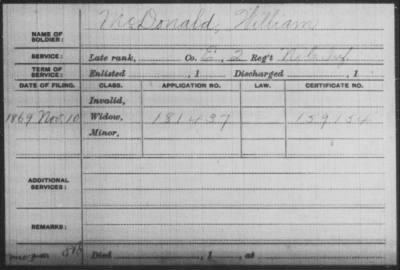 NAME OF SOLDIER: McDonald, William
SERVICE: Late rank, Co. E, 2 Reg't
TERM OF SERVICE: Enlisted , 1 Discharged , 1
DATE OF FILING. CLASS. APPLICATION NO. LAW. CERTIFICATE NO.
Invalid,
1869 Nov. 10 Widow, 181437 159154
Minor,
ADDITIONAL SERVICES:
REMARKS:
Died , 1 , at